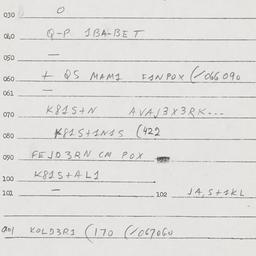 030 0
040 Q-P 1BA-BE T
050 —
060 + QS MAM1 F1NPOX (/066090
061 —
070 K81S+N AVAJ3X3RK---
080 K81S+1N1S (422
090 FEJD3RN CM POX
100 K81S+AL1
101 — 102 JA,S+1KL
a01 KOLD3R1 (170 (/067060